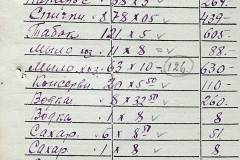 Спички. 878 x 05 ✓ 439-
Табак 121 x 5 605.
Мыло хоз. 11 x 8 = ✓ 88.-
Мыло хоз. 63 x 10 = (126) 630-
Консерви 20 x 5 50 110-
Водка 8 x 32 50 260.
Водка 1 x 8 8
Сахар. 6 x 8 50 51
Сахар. 1 x 8 8